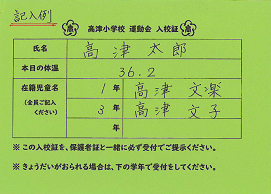 記入例
高津小学校 運動会 入校証
氏名 高津 太郎
本日の体温 36.2
在籍児童名 1年 高津 文楽
(全員ご記入ください) 3年 高津 文子
※この入校証を、保護者証と一緒に必ず受付でご提示ください。
※きょうだいがおられる場合は、下の学年で受付をしてください。